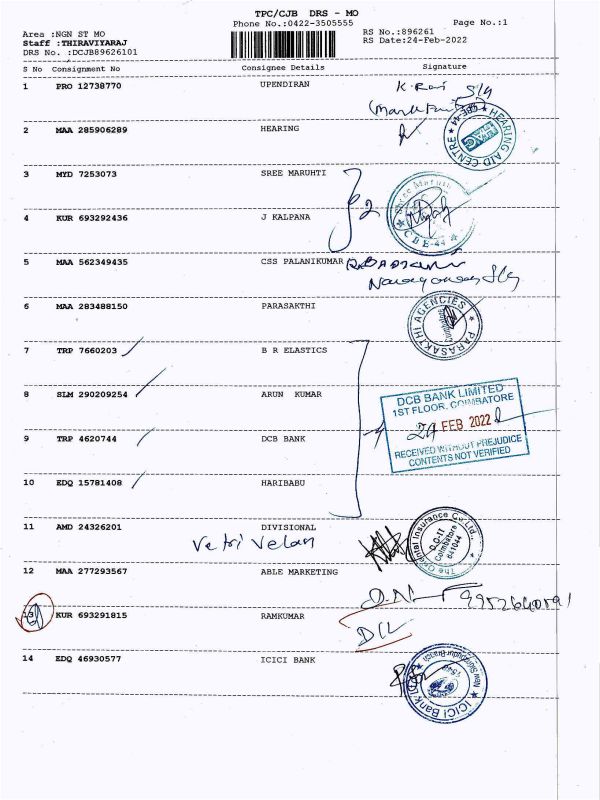 TPC/CJB DRS - MO
Phone No.:0422-3505555
Page No.:1
Area :NGN ST MO
RS No.:896261
Staff :THIRAVIYARAJ
RS Date:24-Feb-2022
DRS No. :DCJB89626101
S No Consignment No Consignee Details Signature
1 PRO 12738770 UPENDIRAN
2 MAA 285906289 HEARING
HEARING AID CENTRE ★ CBE-44 ★
3 MYD 7253073 SREE MARUHTI
Shree Maruti
★ CBE-44 ★
4 KUR 693292436 J KALPANA
5 MAA 562349435 CSS PALANIKUMAR
6 MAA 283488150 PARASAKTHI
★ PARASAKTHI AGENCIES ★
7 TRP 7660203 B R ELASTICS
8 SLM 290209254 ARUN KUMAR
DCB BANK LIMITED
1ST FLOOR, COIMBATORE
24 FEB 2022
RECEIVED WITHOUT PREJUDICE
CONTENTS NOT VERIFIED
9 TRP 4620744 DCB BANK
4
10 EDQ 15781408 HARIBABU
11 AMD 24326201 DIVISIONAL
Vetri Velan
The Oriental Insurance Co.Ltd.,
D.O-II
Coimbatore
641044
12 MAA 277293567 ABLE MARKETING
13 KUR 693291815 RAMKUMAR
D/L
14 EDQ 46930577 ICICI BANK
ICICI Bank Ltd